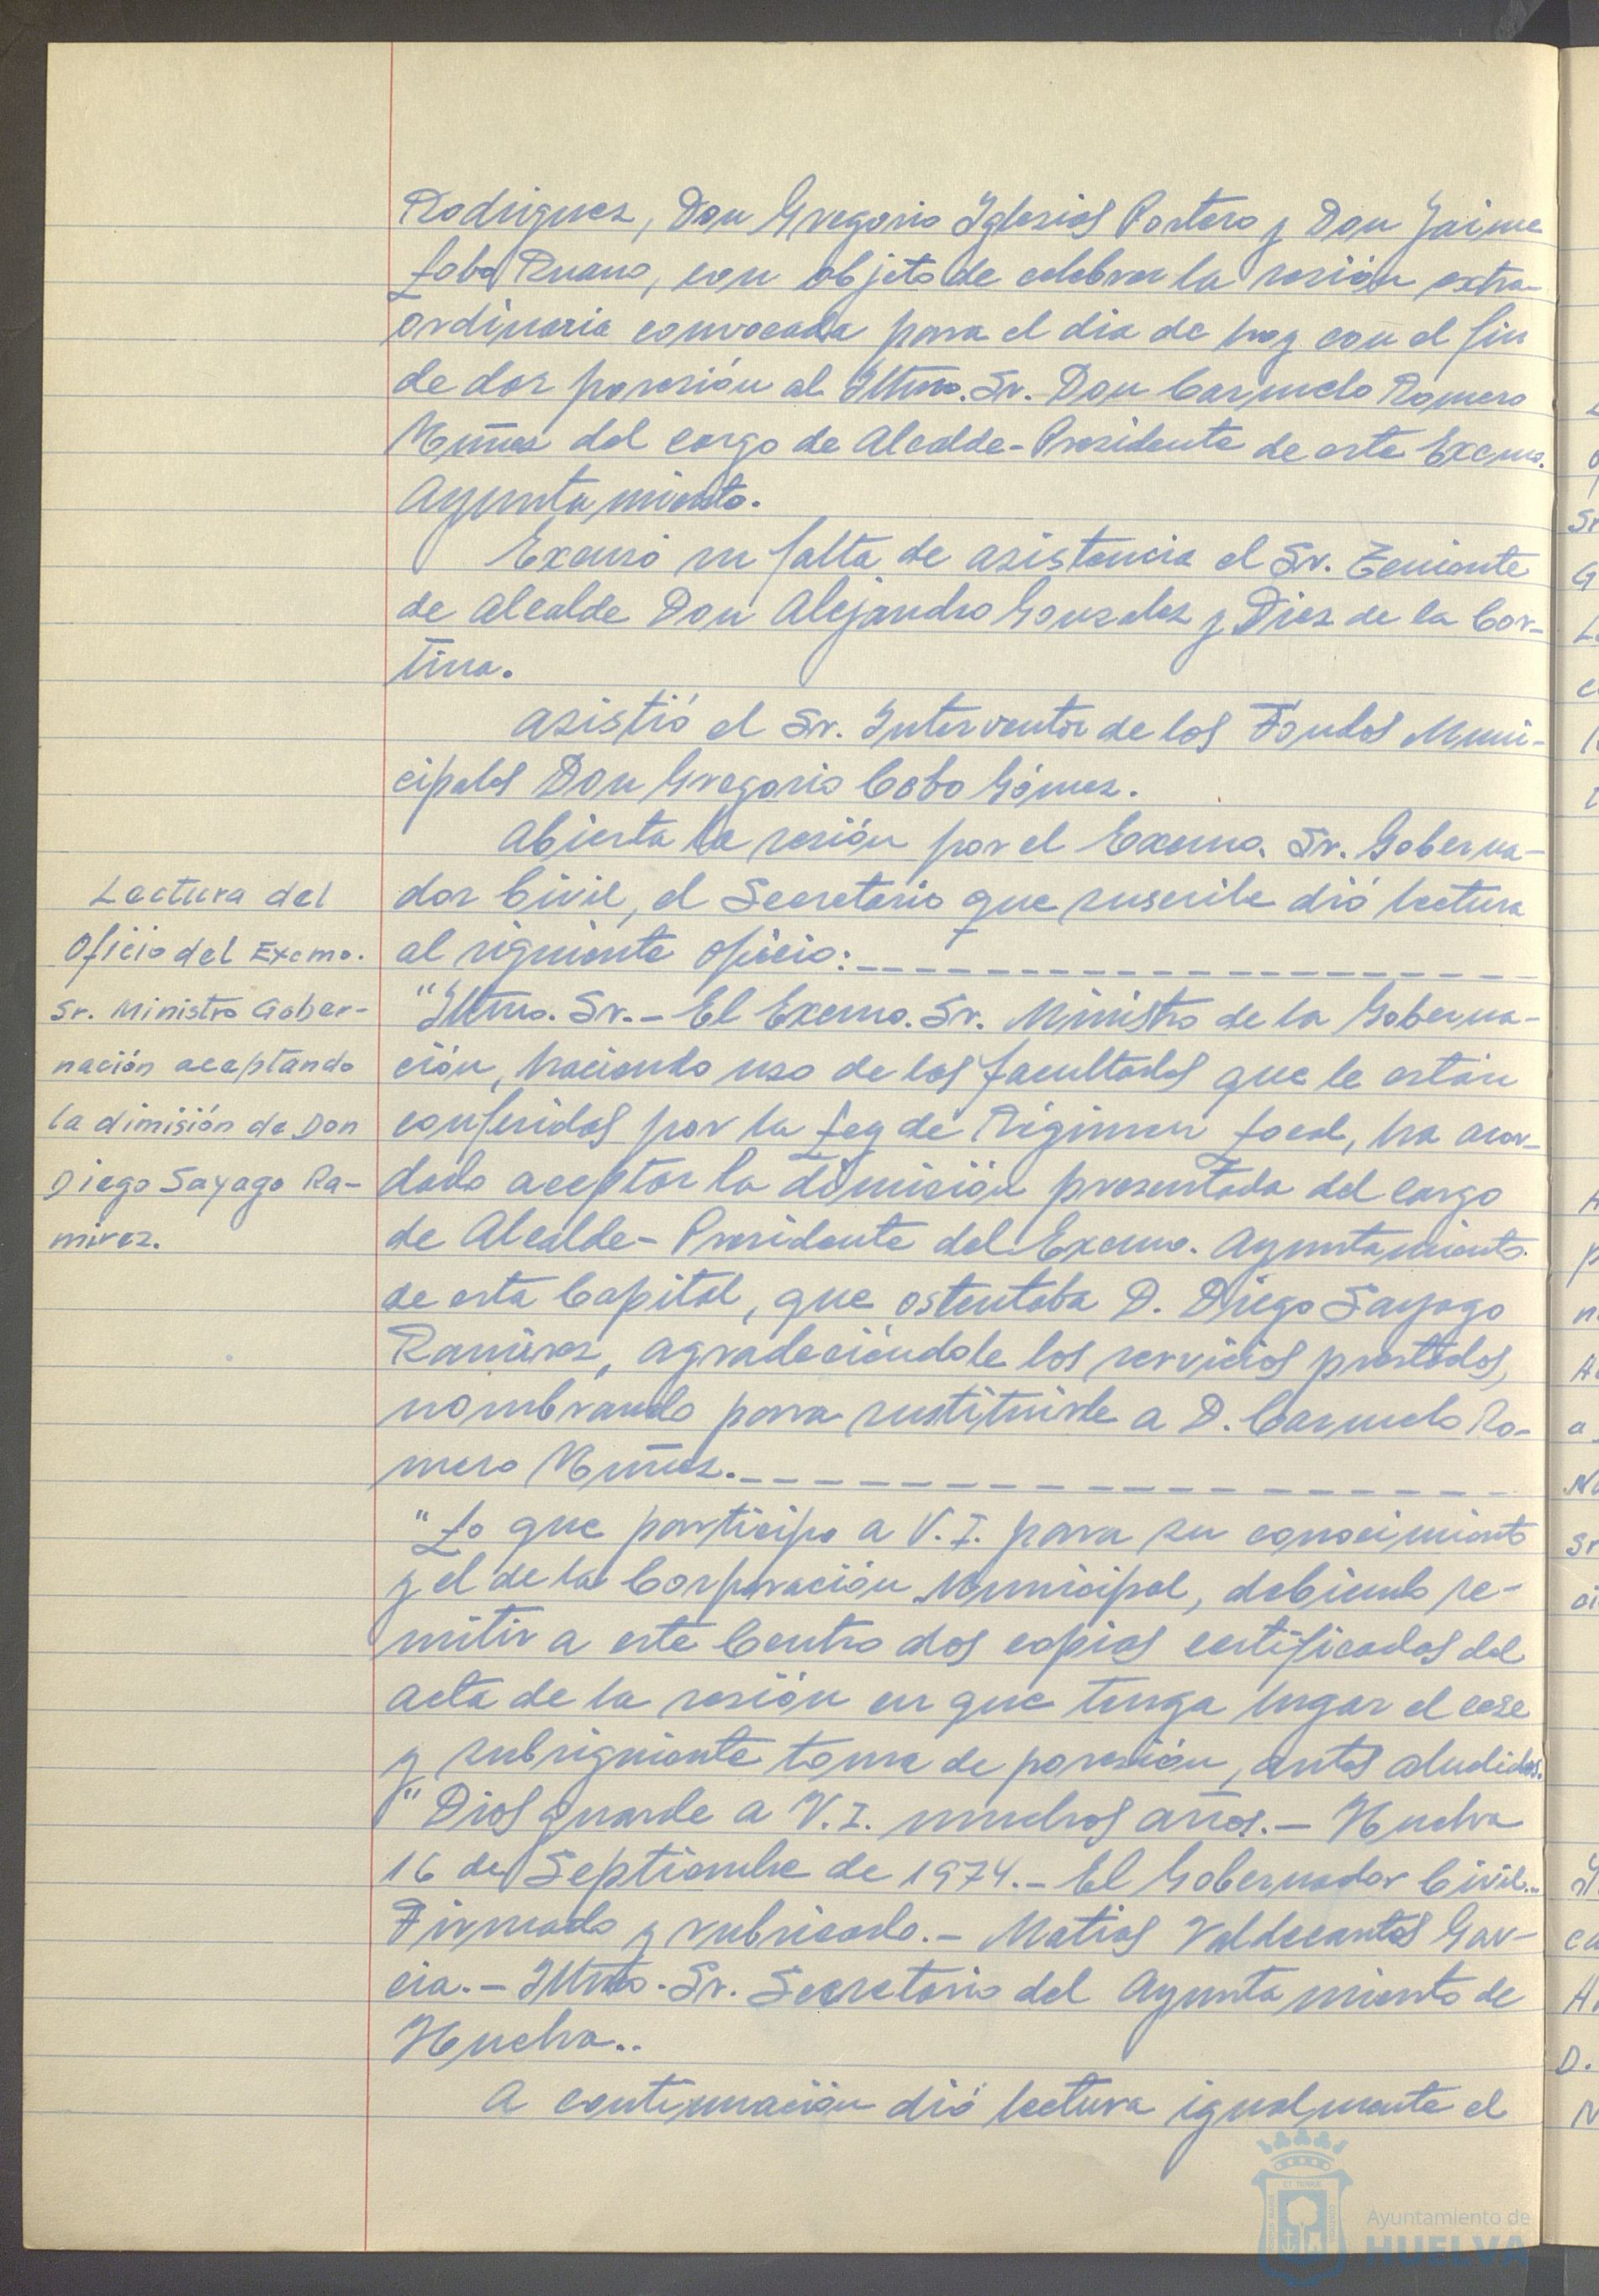 Rodriguez, Don Gregorio Iglesias Portero y Don Jaime
Lobo Ruano, con objeto de celebrar la sesión extra-
ordinaria convocada para el dia de hoy con el fin
de dar posesión al Iltmo. Sr. Don Carmelo Romero
Muñoz del cargo de Alcalde-Presidente de este Excmo.
Ayuntamiento.
Excusó su falta de asistencia el Sr. Teniente
de Alcalde Don Alejandro Gonzalez y Diez de la Cor-
tina.
Asistió el Sr. Interventor de los Fondos Muni-
cipales Don Gregorio Cobo Gómez.
Abierta la sesión por el Excmo. Sr. Goberna-
dor Civil, el Secretario que suscribe dió lectura
al siguiente oficio:
Lectura del
Oficio del Excmo.
Sr. Ministro Gober-
nación aceptando
la dimisión de Don
Diego Sayago Ra-
mirez.
"Iltmo. Sr.- El Excmo. Sr. Ministro de la Goberna-
ción, haciendo uso de las facultades que le están
conferidas por la Ley de Régimen Local, ha acor-
dado aceptar la dimisión presentada del cargo
de Alcalde-Presidente del Excmo. Ayuntamiento
de esta Capital, que ostentaba D. Diego Sayago
Ramirez, agradeciéndole los servicios prestados,
nombrando para sustituirle a D. Carmelo Ro-
mero Muñoz.
"Lo que participo a V.I. para su conocimiento
y el de la Corporación Municipal, debiendo re-
mitir a este Centro dos copias certificadas del
acta de la sesión en que tenga lugar el cese
y subsiguiente toma de posesión, antes aludidos.
"Dios guarde a V.I. muchos años.- Huelva
16 de Septiembre de 1974.- El Gobernador Civil.-
Firmado y rubricado.- Matias Valdecantos Gar-
cia.- Iltmo. Sr. Secretario del Ayuntamiento de
Huelva..
A continuación dió lectura igualmente el
Ayuntamiento de
HUELVA